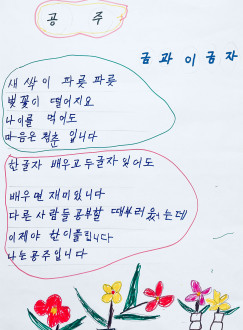 공 주
금 과 이 금 자
새 싹 이 파릇 파릇
벚꽃이 떨어지요
나이를 먹어도
마음은 청춘 입니다
한글자 배우고 두글자 잊어도
배우면 재미있니다
다른 사람들 공부할 때 부러웠는데
이제야 한이풀립니다
나는 공주입니다